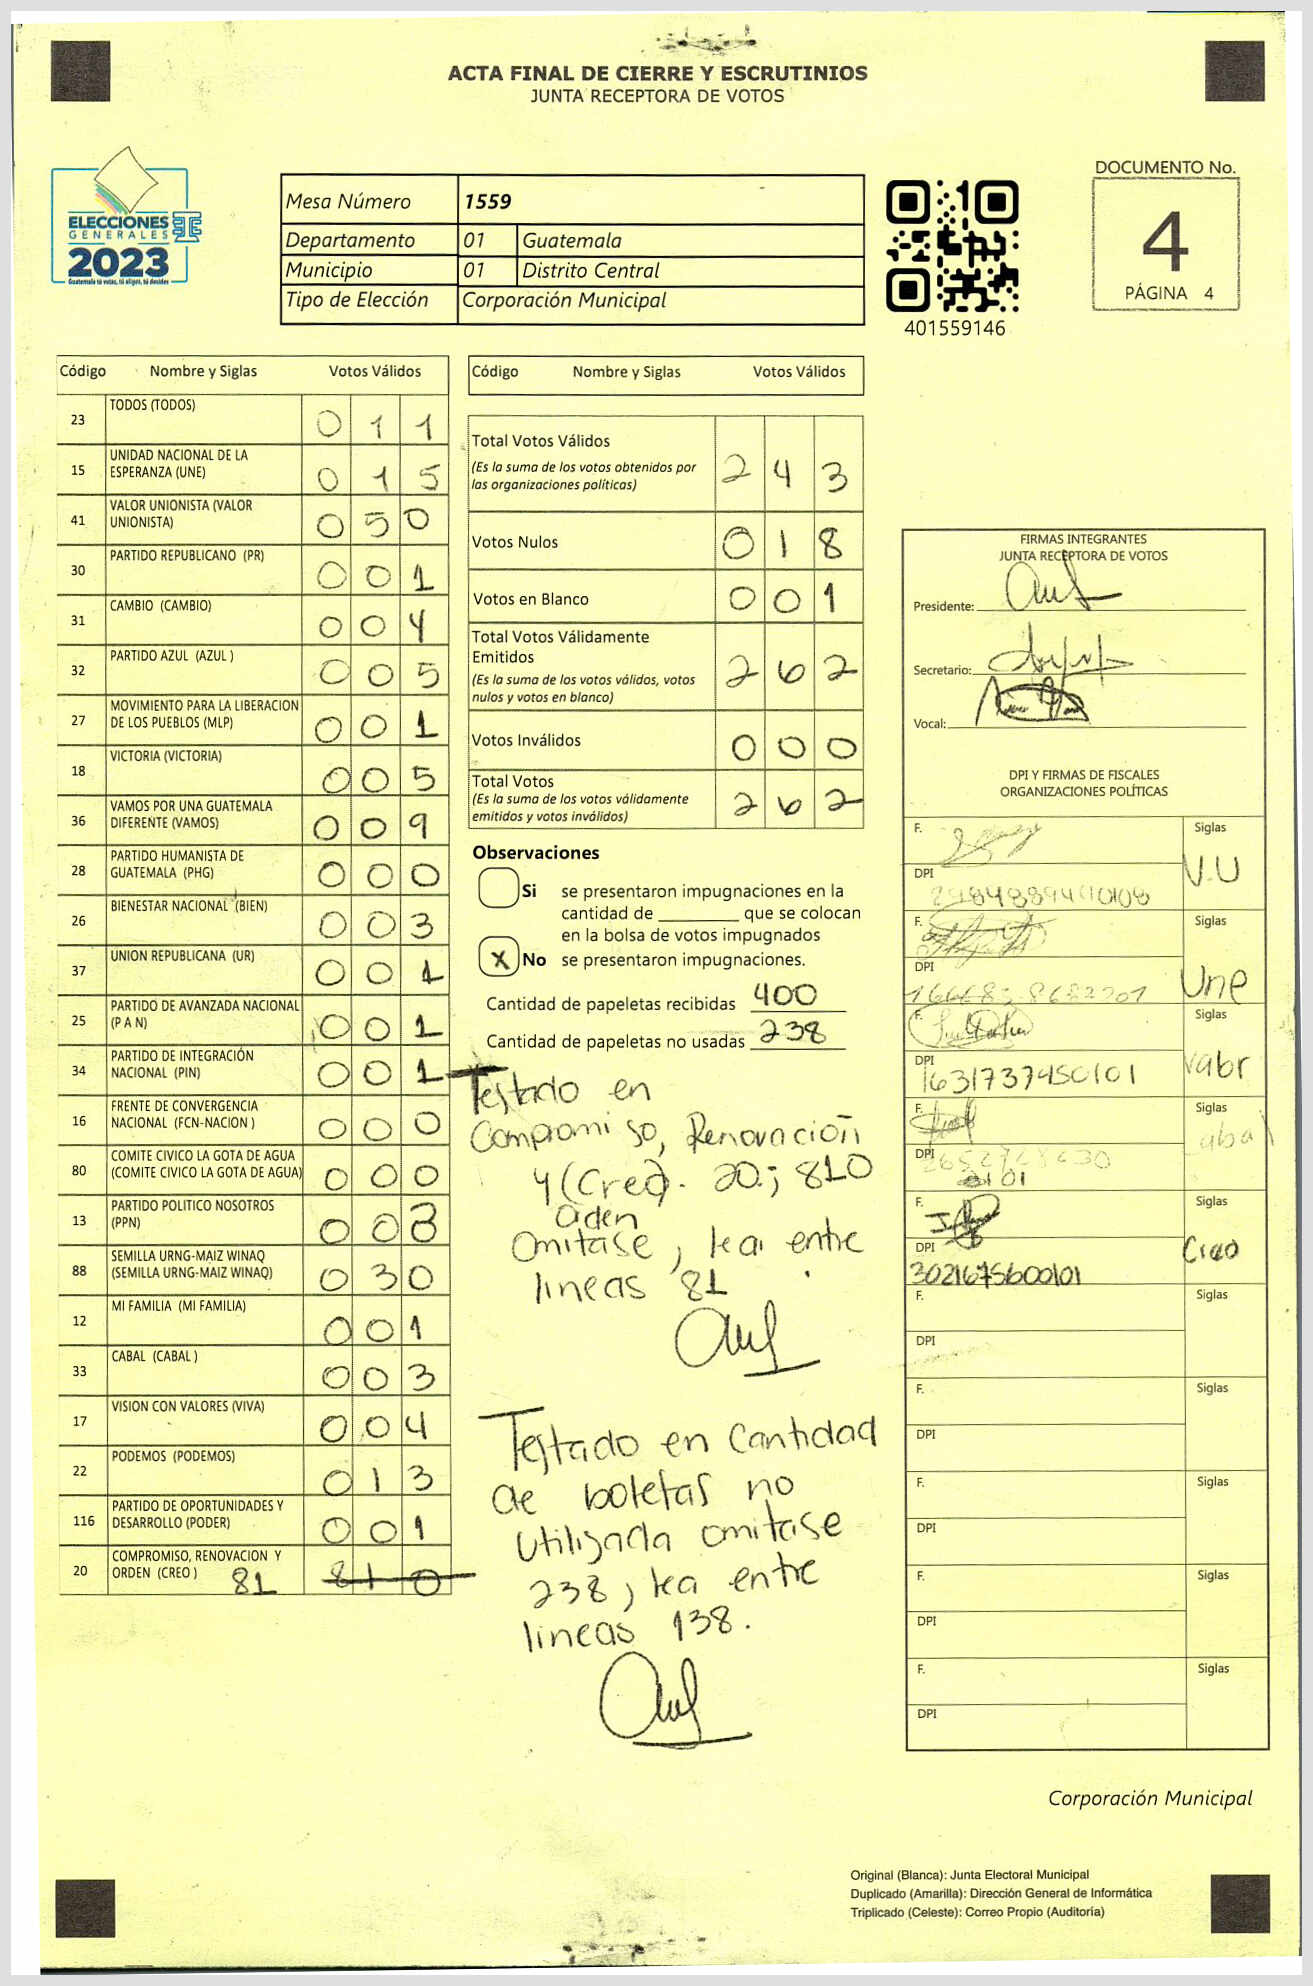 ACTA FINAL DE CIERRE Y ESCRUTINIOS
JUNTA RECEPTORA DE VOTOS
ELECCIONES
GENERALES
2023
Guatemala tú votas, tú eliges, tú decides
Mesa Número 1559
Departamento 01 Guatemala
Municipio 01 Distrito Central
Tipo de Elección Corporación Municipal
401559146
DOCUMENTO No.
4
PÁGINA 4
Código Nombre y Siglas Votos Válidos
23 TODOS (TODOS) 0 1 1
15 UNIDAD NACIONAL DE LA
ESPERANZA (UNE) 0 1 5
41 VALOR UNIONISTA (VALOR
UNIONISTA) 0 5 0
30 PARTIDO REPUBLICANO (PR) 0 0 1
31 CAMBIO (CAMBIO) 0 0 4
32 PARTIDO AZUL (AZUL ) 0 0 5
27 MOVIMIENTO PARA LA LIBERACION
DE LOS PUEBLOS (MLP) 0 0 1
18 VICTORIA (VICTORIA) 0 0 5
36 VAMOS POR UNA GUATEMALA
DIFERENTE (VAMOS) 0 0 9
28 PARTIDO HUMANISTA DE
GUATEMALA (PHG) 0 0 0
26 BIENESTAR NACIONAL (BIEN) 0 0 3
37 UNION REPUBLICANA (UR) 0 0 1
25 PARTIDO DE AVANZADA NACIONAL
(P A N) 0 0 1
34 PARTIDO DE INTEGRACIÓN
NACIONAL (PIN) 0 0 1
16 FRENTE DE CONVERGENCIA
NACIONAL (FCN-NACION ) 0 0 0
80 COMITE CIVICO LA GOTA DE AGUA
(COMITE CIVICO LA GOTA DE AGUA) 0 0 0
13 PARTIDO POLITICO NOSOTROS
(PPN) 0 0 3
88 SEMILLA URNG-MAIZ WINAQ
(SEMILLA URNG-MAIZ WINAQ) 0 3 0
12 MI FAMILIA (MI FAMILIA) 0 0 1
33 CABAL (CABAL ) 0 0 3
17 VISION CON VALORES (VIVA) 0 0 4
22 PODEMOS (PODEMOS) 0 1 3
116 PARTIDO DE OPORTUNIDADES Y
DESARROLLO (PODER) 0 0 1
20 COMPROMISO, RENOVACION Y
ORDEN (CREO ) 81 8 1 0
Código Nombre y Siglas Votos Válidos
Total Votos Válidos
(Es la suma de los votos obtenidos por
las organizaciones políticas) 2 4 3
Votos Nulos 0 1 8
Votos en Blanco 0 0 1
Total Votos Válidamente
Emitidos
(Es la suma de los votos válidos, votos
nulos y votos en blanco) 2 6 2
Votos Inválidos 0 0 0
Total Votos
(Es la suma de los votos válidamente
emitidos y votos inválidos) 2 6 2
Observaciones
Si se presentaron impugnaciones en la
cantidad de ________ que se colocan
en la bolsa de votos impugnados
X No se presentaron impugnaciones.
Cantidad de papeletas recibidas 400
Cantidad de papeletas no usadas 238
Testado en
Compromiso, Renovación
y (Creo). 20; 810
Orden
Omitase, lea entre
lineas 81
Testado en Cantidad
de boletas no
utilizada omitase
238, lea entre
lineas 138.
FIRMAS INTEGRANTES
JUNTA RECEPTORA DE VOTOS
Presidente:
Secretario:
Vocal:
DPI Y FIRMAS DE FISCALES
ORGANIZACIONES POLÍTICAS
F. Siglas
V.U
DPI
F. Siglas
Une
DPI
F. Siglas
DPI
1631737450101
F. Siglas
Cabal
DPI
F. Siglas
Creo
DPI
3021675600101
F. Siglas
DPI
F. Siglas
DPI
F. Siglas
DPI
F. Siglas
DPI
F. Siglas
DPI
Corporación Municipal
Original (Blanca): Junta Electoral Municipal
Duplicado (Amarilla): Dirección General de Informática
Triplicado (Celeste): Correo Propio (Auditoría)